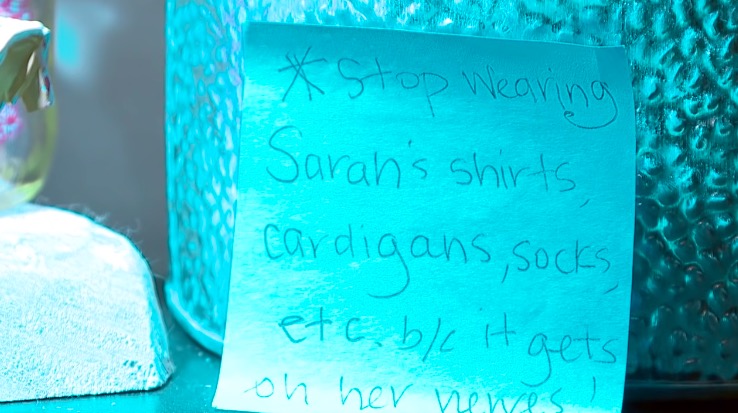 *Stop wearing
Sarah's shirts,
cardigans, socks,
etc. b/c it gets
on her nerves!